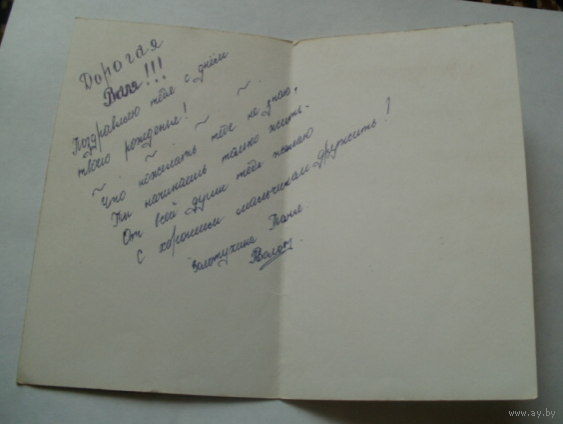 Дорогая
Валя!!!
Поздравляю тебя с днём
твоего рожденья!
~ . ~ . ~ . ~ .
Что пожелать тебе не знаю,
Ты начинаешь только жить.
От всей души тебе желаю
С хорошим мальчиком дружить!
Золотухина Таня
www.ay.by